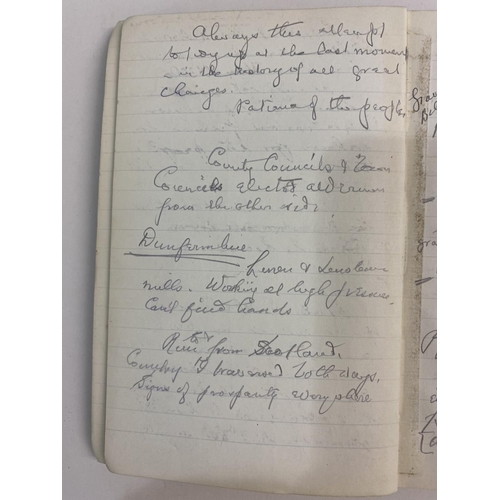 Always this attempt
to at the last moment
in the history of all great
changes.
Patience of the people.
County Councils & Town
Councils elected aldermen
from the other side
Dunfermline
Linen & Linoleum
mills. Working at high pressure,
can't find hands
Run to & from Scotland.
Country both ways.
Signs of prosperity everywhere